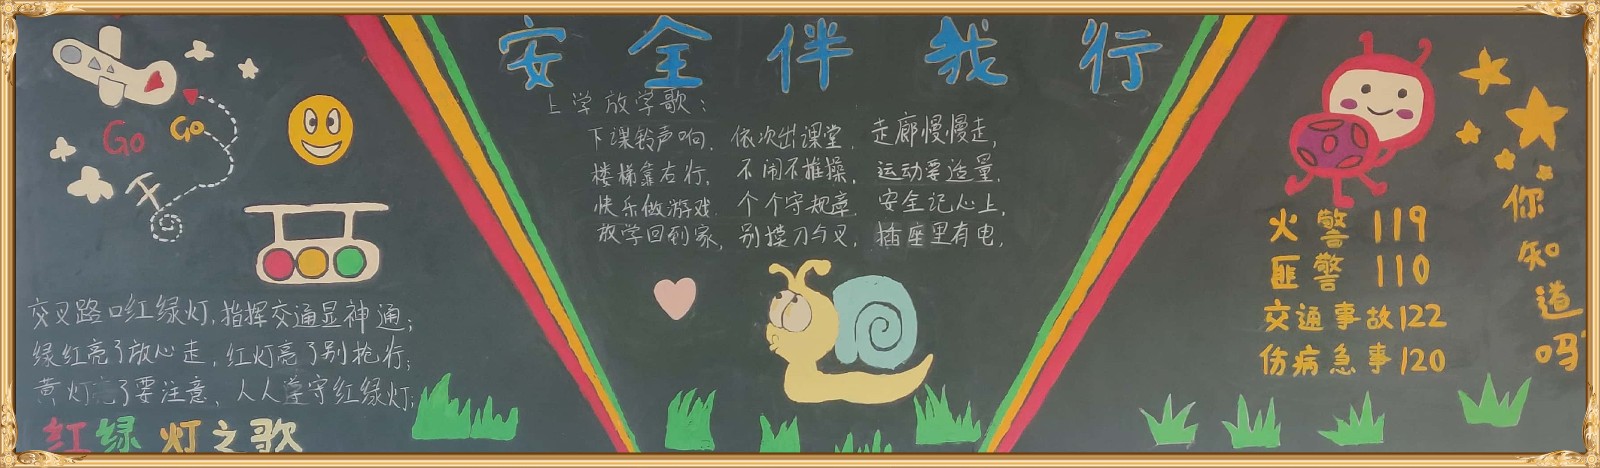 安全伴我行
Go Go
交叉路口红绿灯,指挥交通显神通;
绿红亮了放心走,红灯亮了别抢行;
黄灯亮了要注意,人人遵守红绿灯;
红绿灯之歌
上学放学歌:
下课铃声响,依次出课堂,走廊慢慢走,
楼梯靠右行,不闹不推搡,运动要适量,
快乐做游戏,个个守规章,安全记心上,
放学回到家,别摸刀与叉,插座里有电,
火警119
匪警110
交通事故122
伤病急事120
你知道吗?